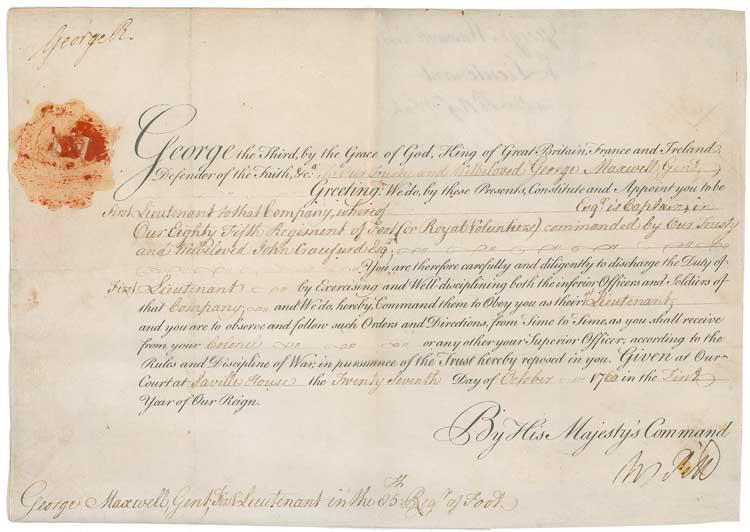 George R.
George the Third, by the Grace of God, King of Great Britain, France and Ireland,
Defender of the Faith, &c.ᵃ To Our Trusty and Welbeloved George Maxwell, Gent.
Greeting: We do, by these Presents, Constitute and Appoint you to be
First Lieutenant to that Company, whereof Esqʳ is Captain, in
Our Eighty Fifth Regiment of Foot (or Royal Voluntiers) commanded by Our Trusty
and Welbeloved John Craufurd Esqʳ
You are therefore carefully and diligently to discharge the Duty of
First Lieutenant by Exercising and Well disciplining both the inferior Officers and Soldiers of
that Company, and We do, hereby, Command them to Obey you as their Lieutenant,
and you are to observe and follow such Orders and Directions, from Time to Time, as you shall receive
from your Colonel or any other your Superior Officer, according to the
Rules and Discipline of War, in pursuance of the Trust hereby reposed in you. Given at Our
Court at Saville House the Twenty Seventh Day of October 1760 in the First
Year of Our Reign.
By His Majesty's Command
W Pitt
George Maxwell, Gent, First Lieutenant in the 85ᵗʰ Regᵗ of Foot.